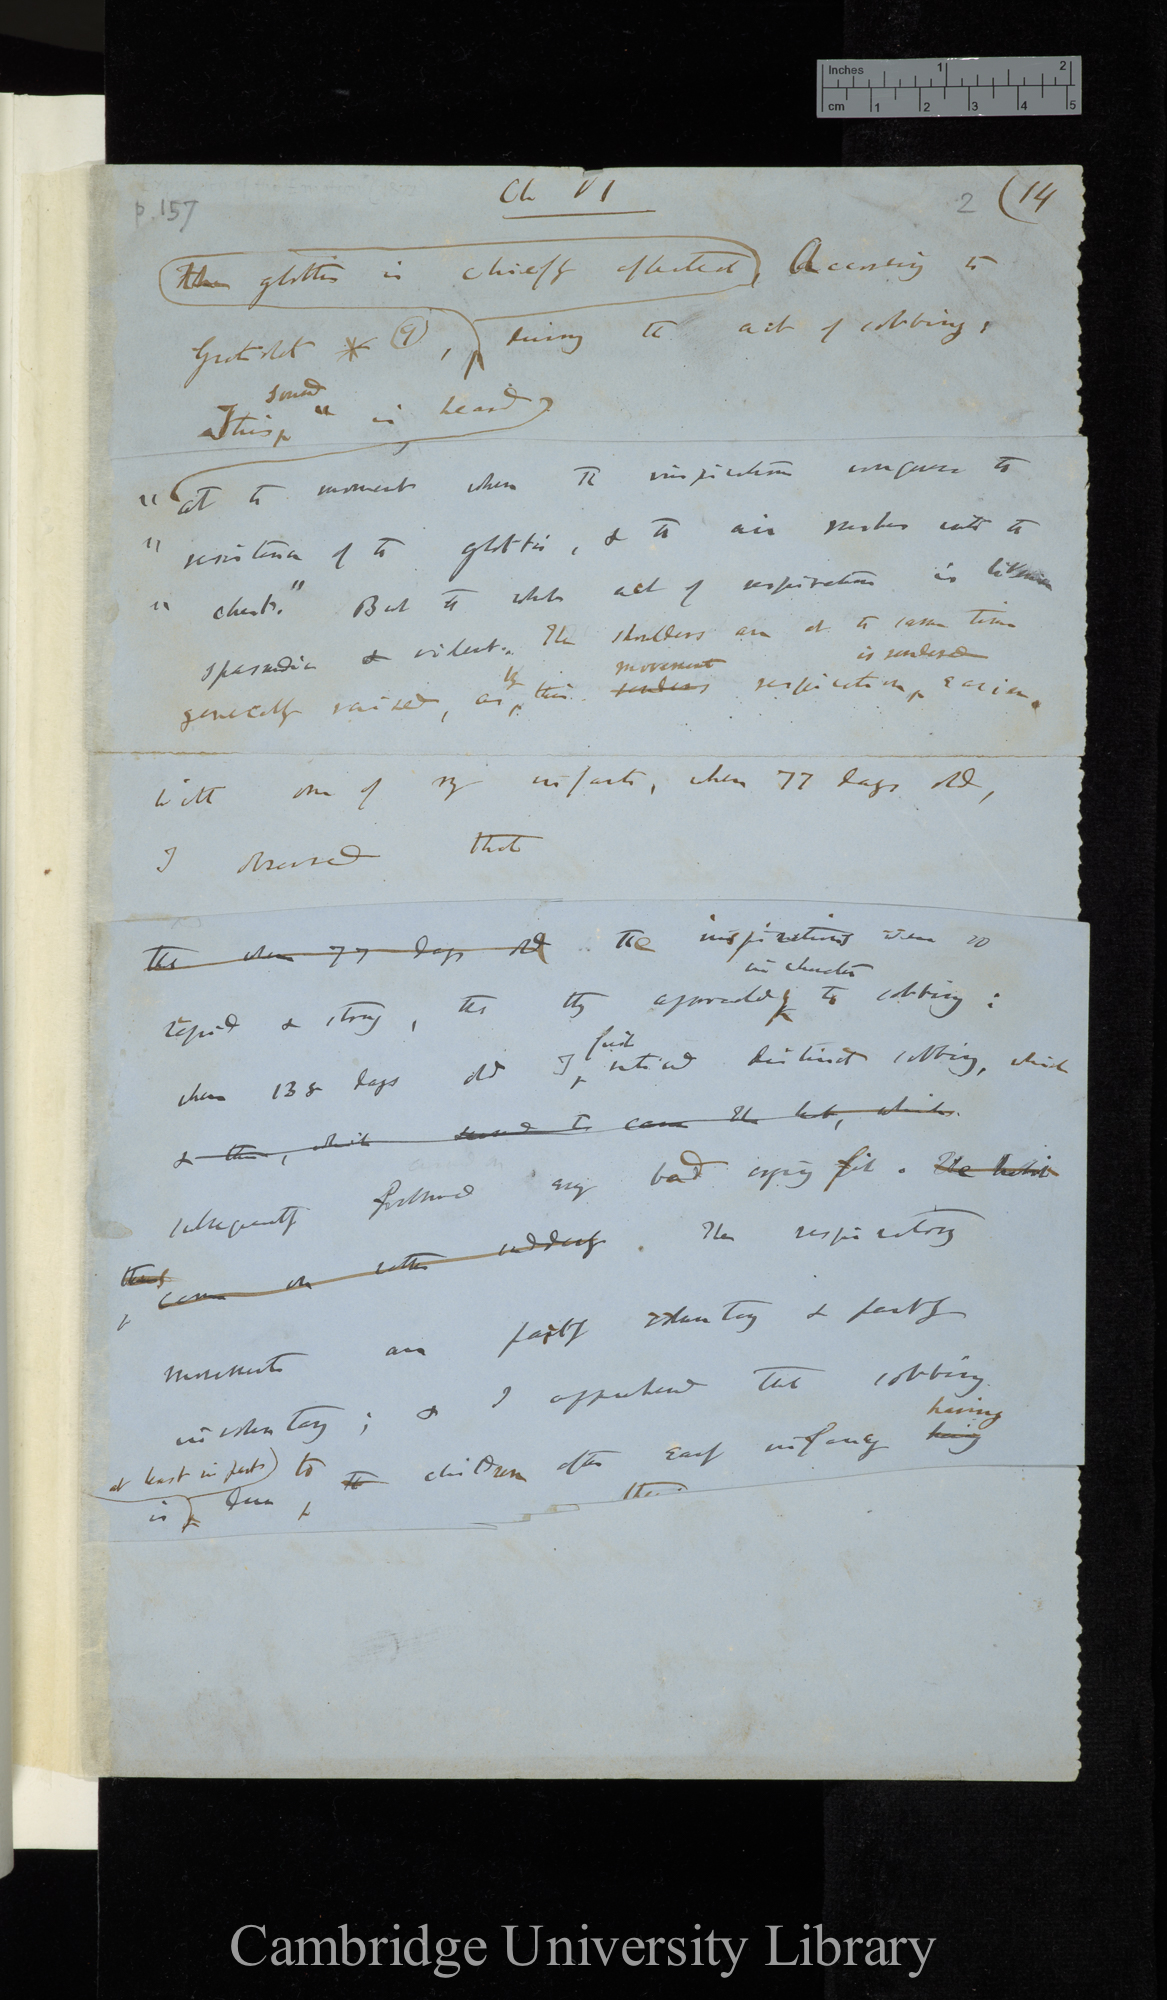 Inches 1 2
cm 1 2 3 4 5
p. 157
Ch VI
2 (14
the glottis is chiefly affected, According to
Gratiolet * (9), during the act of sobbing;
This sound is heard
"at the moment when the inspiration conquers the
"resistance of the glottis, & the air rushes into the
"chest." But the whole act of respiration is likewise
spasmodic & violent. The shoulders are at the same time
generally raised, as by this movement renders respiration is rendered easier.
With one of my infants, when 77 days old,
I observed that
that when 77 days old the inspirations were so
rapid & strong, that they approached in character to sobbing:
when 138 days old I first noticed distinct sobbing, which
& then, which seemed to came the but, which
subsequently followed every bad crying fit. The habit
thus
came on rather suddenly. The respiratory
movements are partly voluntary & partly
involuntary; & I apprehend that sobbing
is at least in part due to the children after early infancy having being
Cambridge University Library